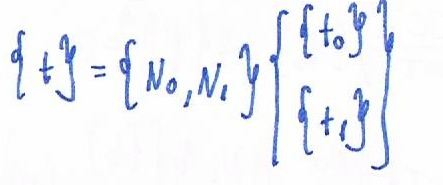 {t} = {N₀, N₁} { {t₀}
{t₁} }